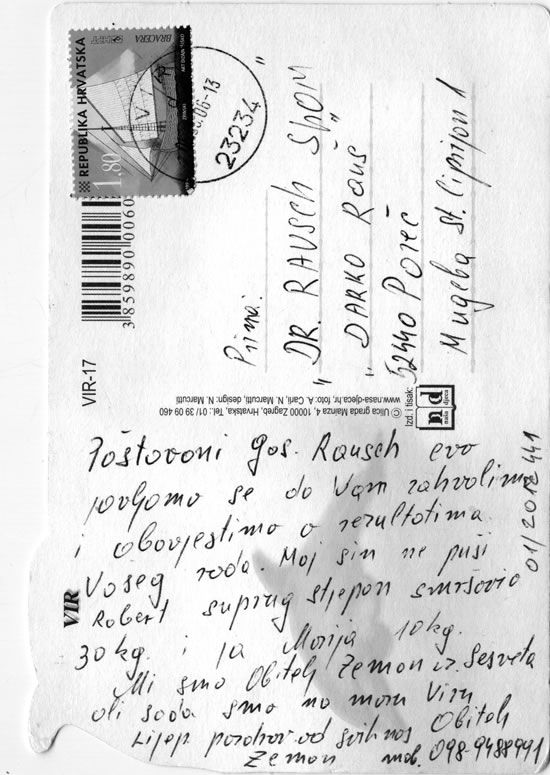 REPUBLIKA HRVATSKA
1.80
BRACERA
HPT
VIR
06-13
23234
3859890 0060
VIR-17
Prima:
"DR. RAUSCH SHOM"
"DARKO Rauš"
52440 POREČ
Mugeba St. Ciprijon 1
Izd. i tisak:
nd
naša djeca
© Ulica grada Mainza, 4, 10000 Zagreb, Hrvatska, Tel.: 01/ 39 09 460
www.nasa-djeca.hr, foto: A. Carli, N. Marcutti, design: N. Marcutti
VIR
Poštovani gos. Rausch evo
javljamo se da Vam zahvalimo
i obavjestimo o rezultatima
Vašeg rada. Moj sin ne puši
Robert suprug Stjepan smršavio
30 kg. i ja Marija 10 kg.
Mi smo Obitelj Zemon iz Sesveta
ali sada smo na moru Viru
Lijep pozdrav od svih nas Obitelj
Zemon mob. 098-9488991
01/2012 441